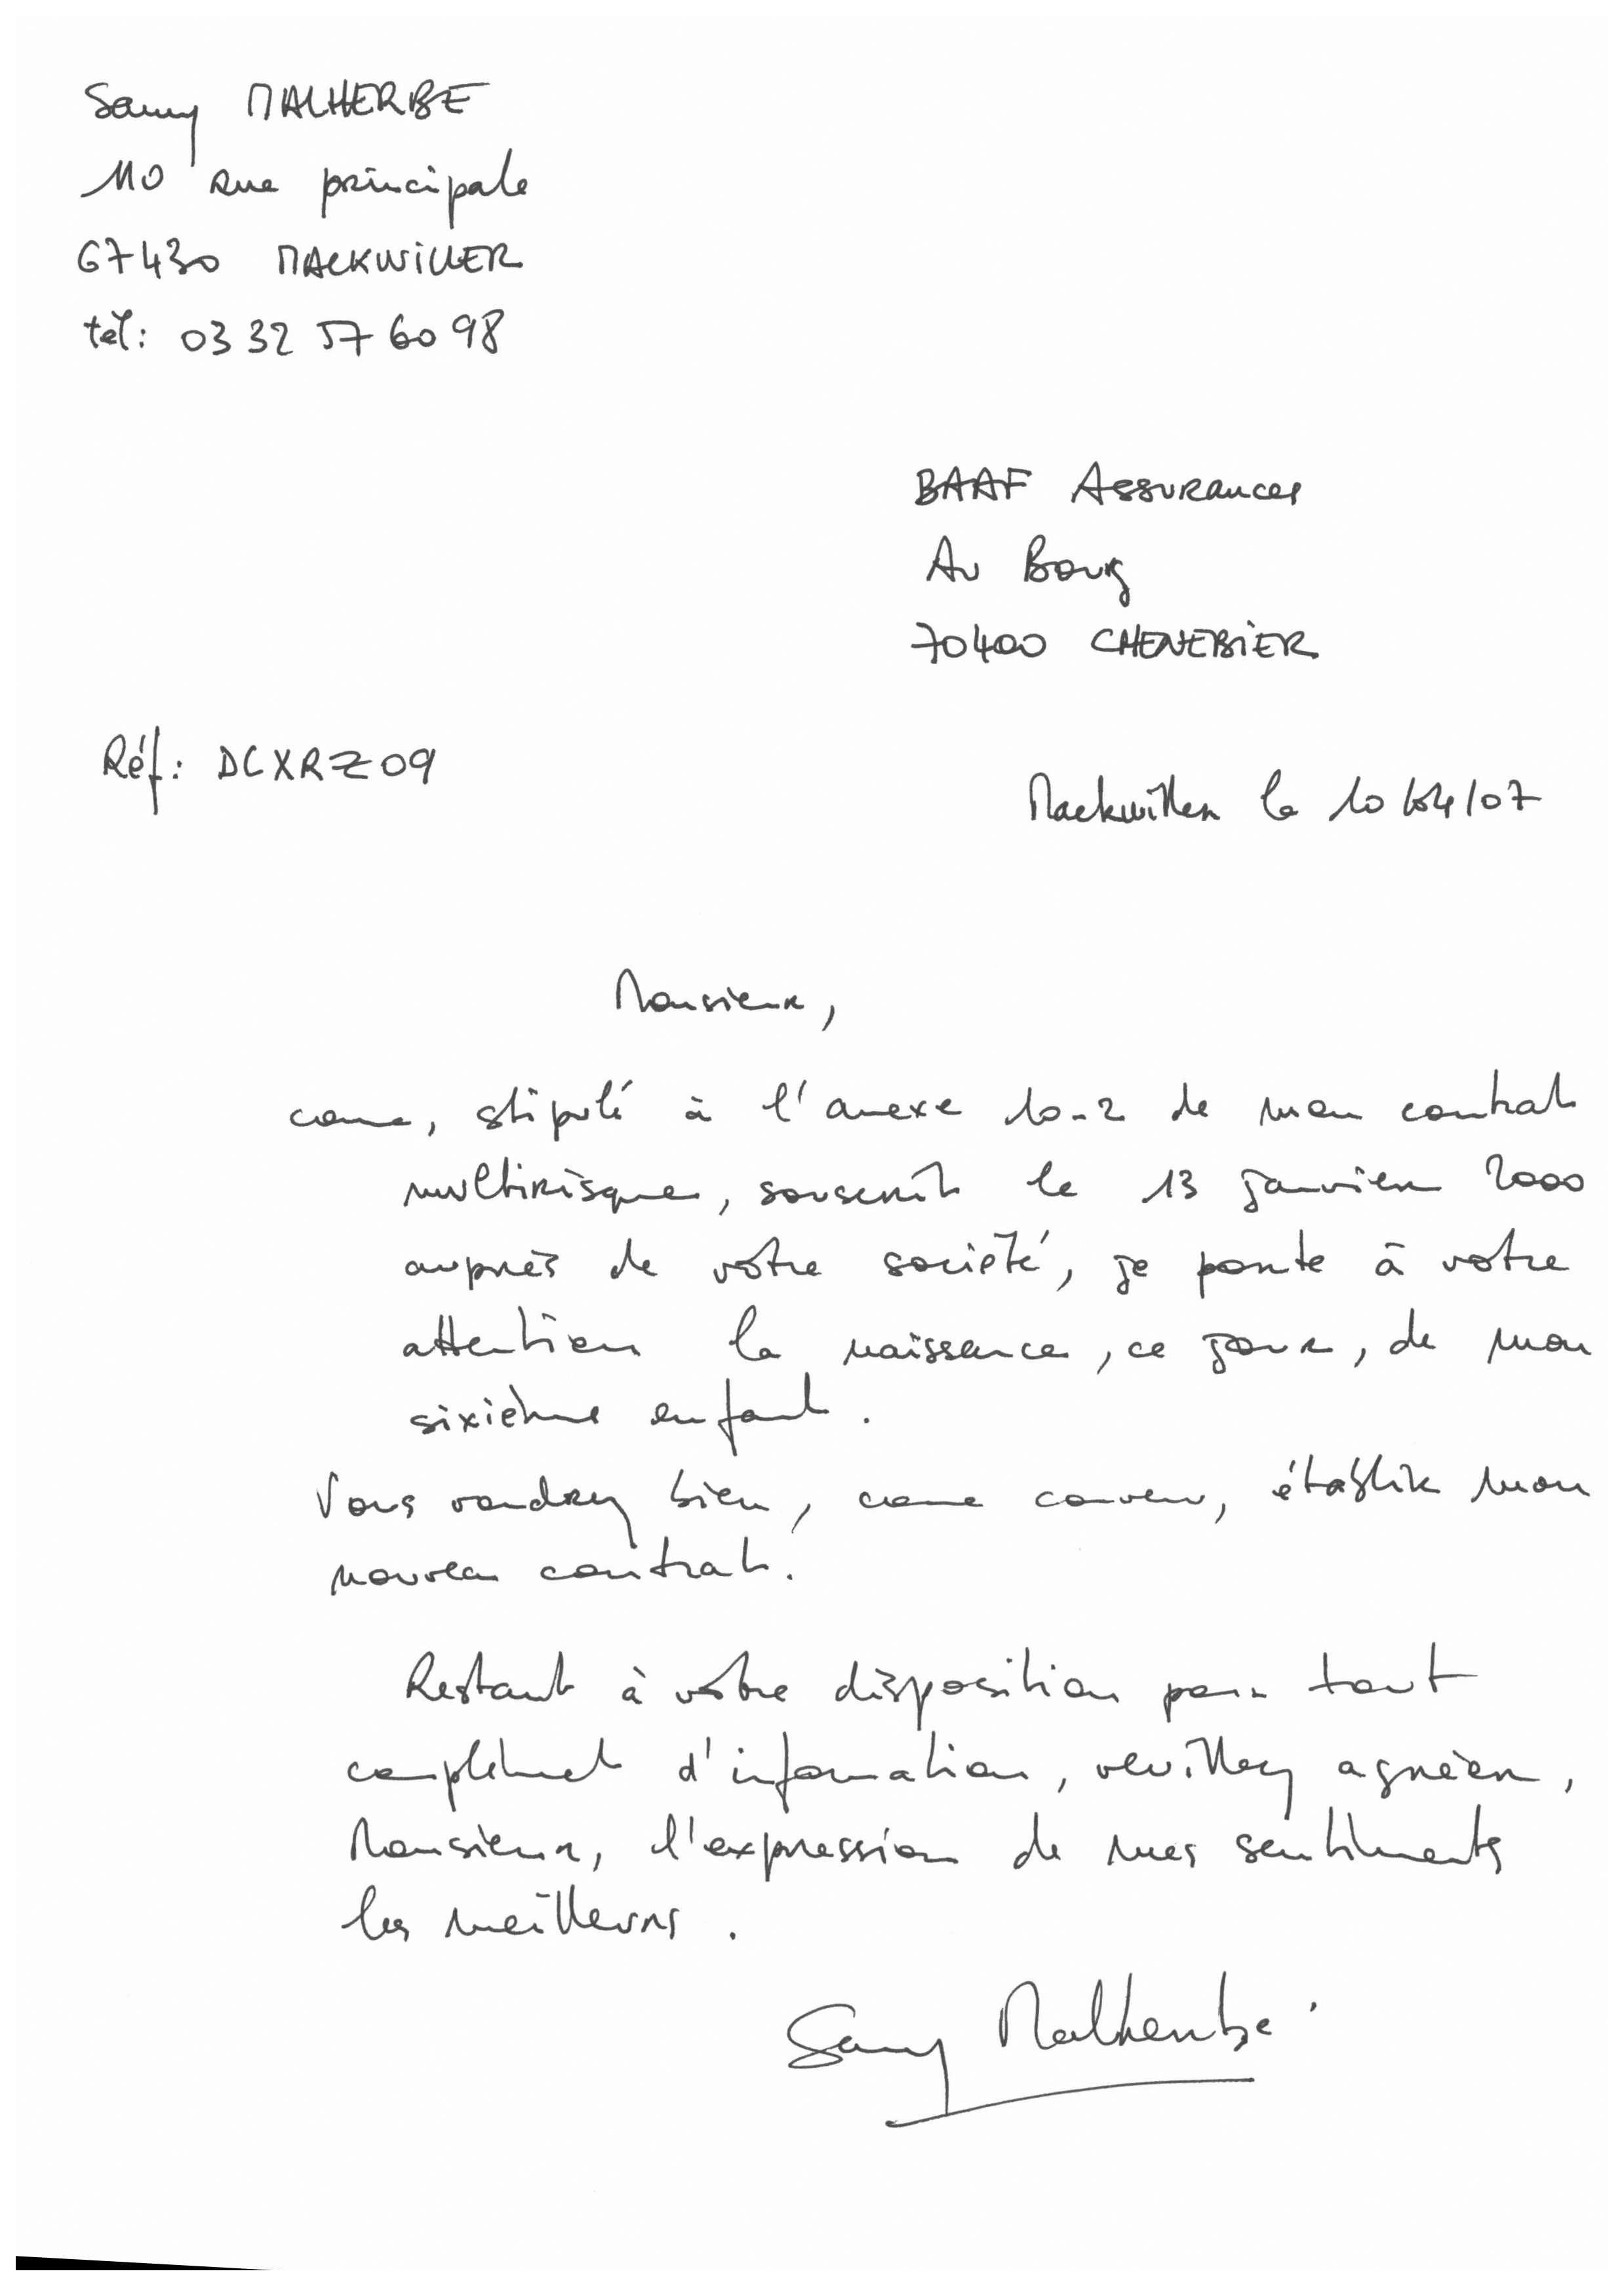 Samy MALHERBE
110 rue principale
67430 MACKWILLER
tél: 03 32 57 60 98
BAAF Assurances
Au Bourg
70400 CHENEBIER
Réf: DCXRZ09
Mackwiller le 10/04/07
Monsieur,
comme, stipulé à l'anexe 10-2 de mon contrat
multirisque, souscrit le 13 janvier 2000
auprès de votre société, je porte à votre
attention la naissance, ce jour, de mon
sixième enfant.
Vous voudrez bien, comme convenu, établir mon
nouveau contrat.
Restant à votre disposition pour tout
complément d'information, veuillez agréer,
Monsieur, l'expression de mes sentiments
les meilleurs.
Samy Malherbe